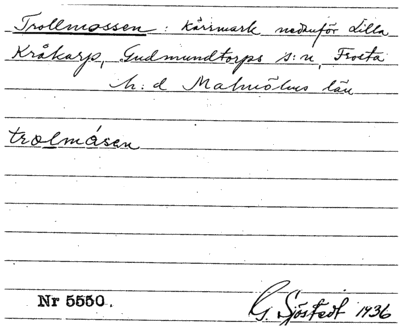 Trollmossen : Kärrmark nedanför Lilla
Kråkarp, Gudmundtorps s:n, Frosta
h:d Malmöhus län
trolmåsen
Nr 5550.
G. Sjöstedt 1936